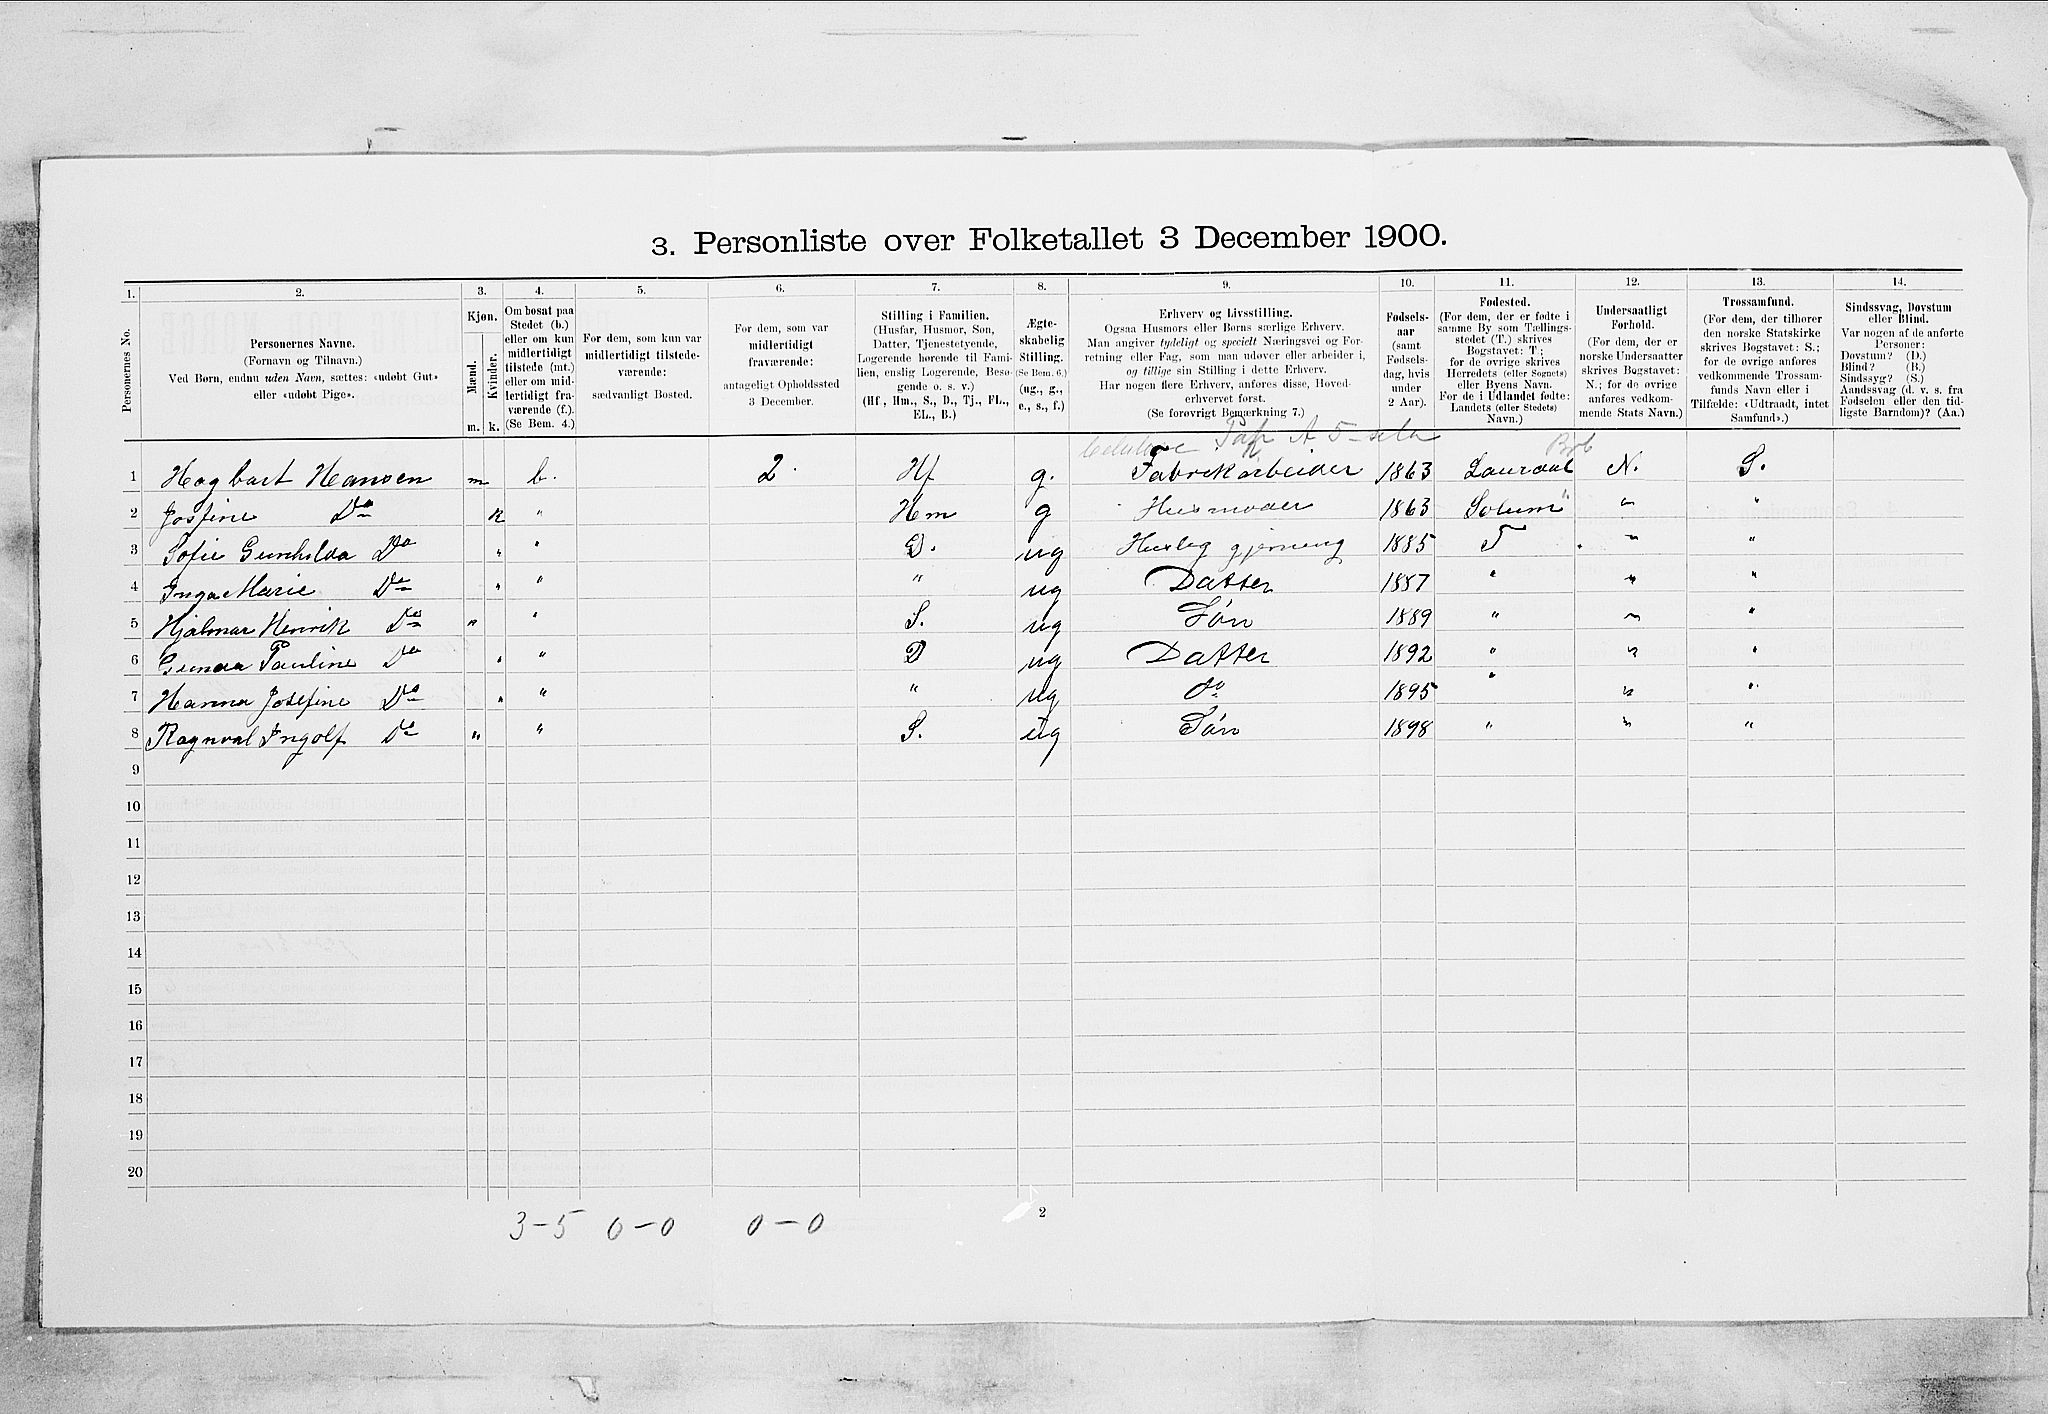 3. Personliste over Folketallet 3 December 1900.
1. 2. 3. 4. 5. 6. 7. 8. 9. 10. 11. 12. 13. 14.
Personernes No.
Personernes Navne.
(Fornavn og Tilnavn.)
Ved Børn, endnu uden Navn, sættes: «udøbt Gut»
eller «udøbt Pige».
Kjøn.
Mænd.
Kvinder.
m. k.
Om bosat paa
Stedet (b.)
eller om kun
midlertidigt
tilstede (mt.)
eller om mid-
lertidigt fra-
værende (f.).
(Se Bem. 4.)
For dem, som kun var
midlertidigt tilstede-
værende:
sædvanligt Bosted.
For dem, som var
midlertidigt
fraværende:
antageligt Opholdssted
3 December.
Stilling i Familien.
(Husfar, Husmor, Søn,
Datter, Tjenestetyende,
Logerende hørende til Fami-
lien, enslig Logerende, Besø-
gende o. s. v.)
(Hf, Hm., S., D., Tj., FL.,
EL., B.)
Ægte-
skabelig
Stilling.
(Se Bem. 6.)
(ug., g.,
e., s., f.)
Erhverv og Livsstilling.
Ogsaa Husmors eller Børns særlige Erhverv.
Man angiver tydeligt og specielt Næringsvei og For-
retning eller Fag, som man udøver eller arbeider i,
og tillige sin Stilling i dette Erhverv.
Har nogen flere Erhverv, anføres disse, Hoved-
erhvervet først.
(Se forøvrigt Bemærkning 7.)
Fødsels-
aar
(samt
Fødsels-
dag, hvis
under
2 Aar).
Fødested.
(For dem, der er fødte i
samme By som Tællings-
stedet (T.) skrives
Bogstavet: T.;
for de øvrige skrives
Herredets (eller Sognets)
eller Byens Navn.
For de i Udlandet fødte:
Landets (eller Stedets)
Navn.)
Undersaatligt
Forhold.
(For dem, der er
norske Undersaatter
skrives Bogstavet:
N.; for de øvrige
anføres vedkom-
mende Stats Navn.)
Trossamfund.
(For dem, der tilhører
den norske Statskirke
skrives Bogstavet: S.;
for de øvrige anføres
vedkommende Trossam-
funds Navn eller i
Tilfælde: «Udtraadt, intet
Samfund».)
Sindssvag, Døvstum
eller Blind.
Var nogen af de anførte
Personer:
Døvstum? (D.)
Blind? (B.)
Sindssyg? (S.)
Aandssvag (d. v. s. fra
Fødselen eller den tid-
ligste Barndom)? (Aa.)
1 Hagbart Hansen m b. 2. Hf g. Fabrikarbeider 1863 Laurdal N. S.
2 Josfine Do k " Hm g Husmoder 1863 Solum " " "
3 Sofie Gunhilda Do " " D. ug Huslig gjerning 1885 T " "
4 Inga Marie Do " " " ug Datter 1887 " " "
5 Hjalmar Henrik Do " " S. ug Søn 1889 " " "
6 Gunda Pauline Do " " D ug Datter 1892 " " "
7 Hanna Josefine Do " " " ug do 1895 " " "
8 Ragnval Ingolf Do " " S. ug Søn 1898 " " "
9
10
11
12
13
14
15
16
17
18
19
20
3-5 0-0 0-0
2